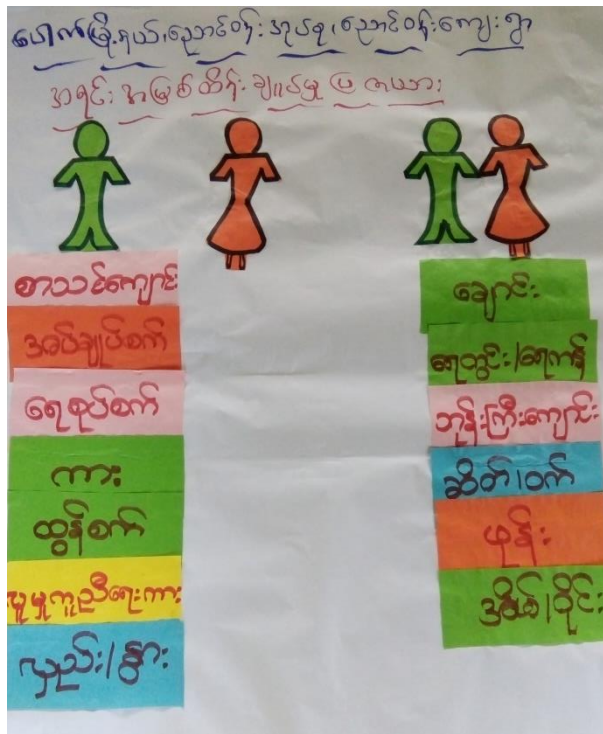 ပေါက်မြို့နယ်၊ညောင်ဝန်းအုပ်စု၊ညောင်ဝန်းကျေးရွာ
အရင်းအမြစ်ထိန်းချုပ်မှုပြဇယား
စာသင်ကျောင်း
အပ်ချုပ်စက်
ရေစုပ်စက်
ကား
ထွန်စက်
ပူမှုကူညီရေးကား
လှည်း/နွား
ချောင်း
ရေတွင်း/ရေကန်
ဘုန်းကြီးကျောင်း
ဆိတ်/ဝက်
ဖုန်း
အိမ်/ဝိုင်း